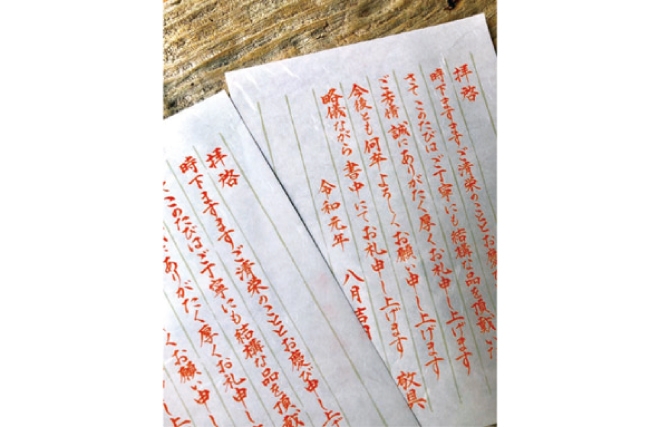 拝啓
時下ますますご清栄のこととお
さて このたびはご丁寧にも結構な品を頂戴いた
ご芳情 誠にありがたく厚くお礼申し上げます
今後とも何卒よろしくお願い申し上げます
略儀ながら 書中にてお礼申し上げます 敬具
令和元年 八月吉
拝啓
時下ますますご清栄のこととお慶び申し上
このたびはご丁寧にも結構な品を頂戴
にありがたく厚くお礼申し
くお願い申し上